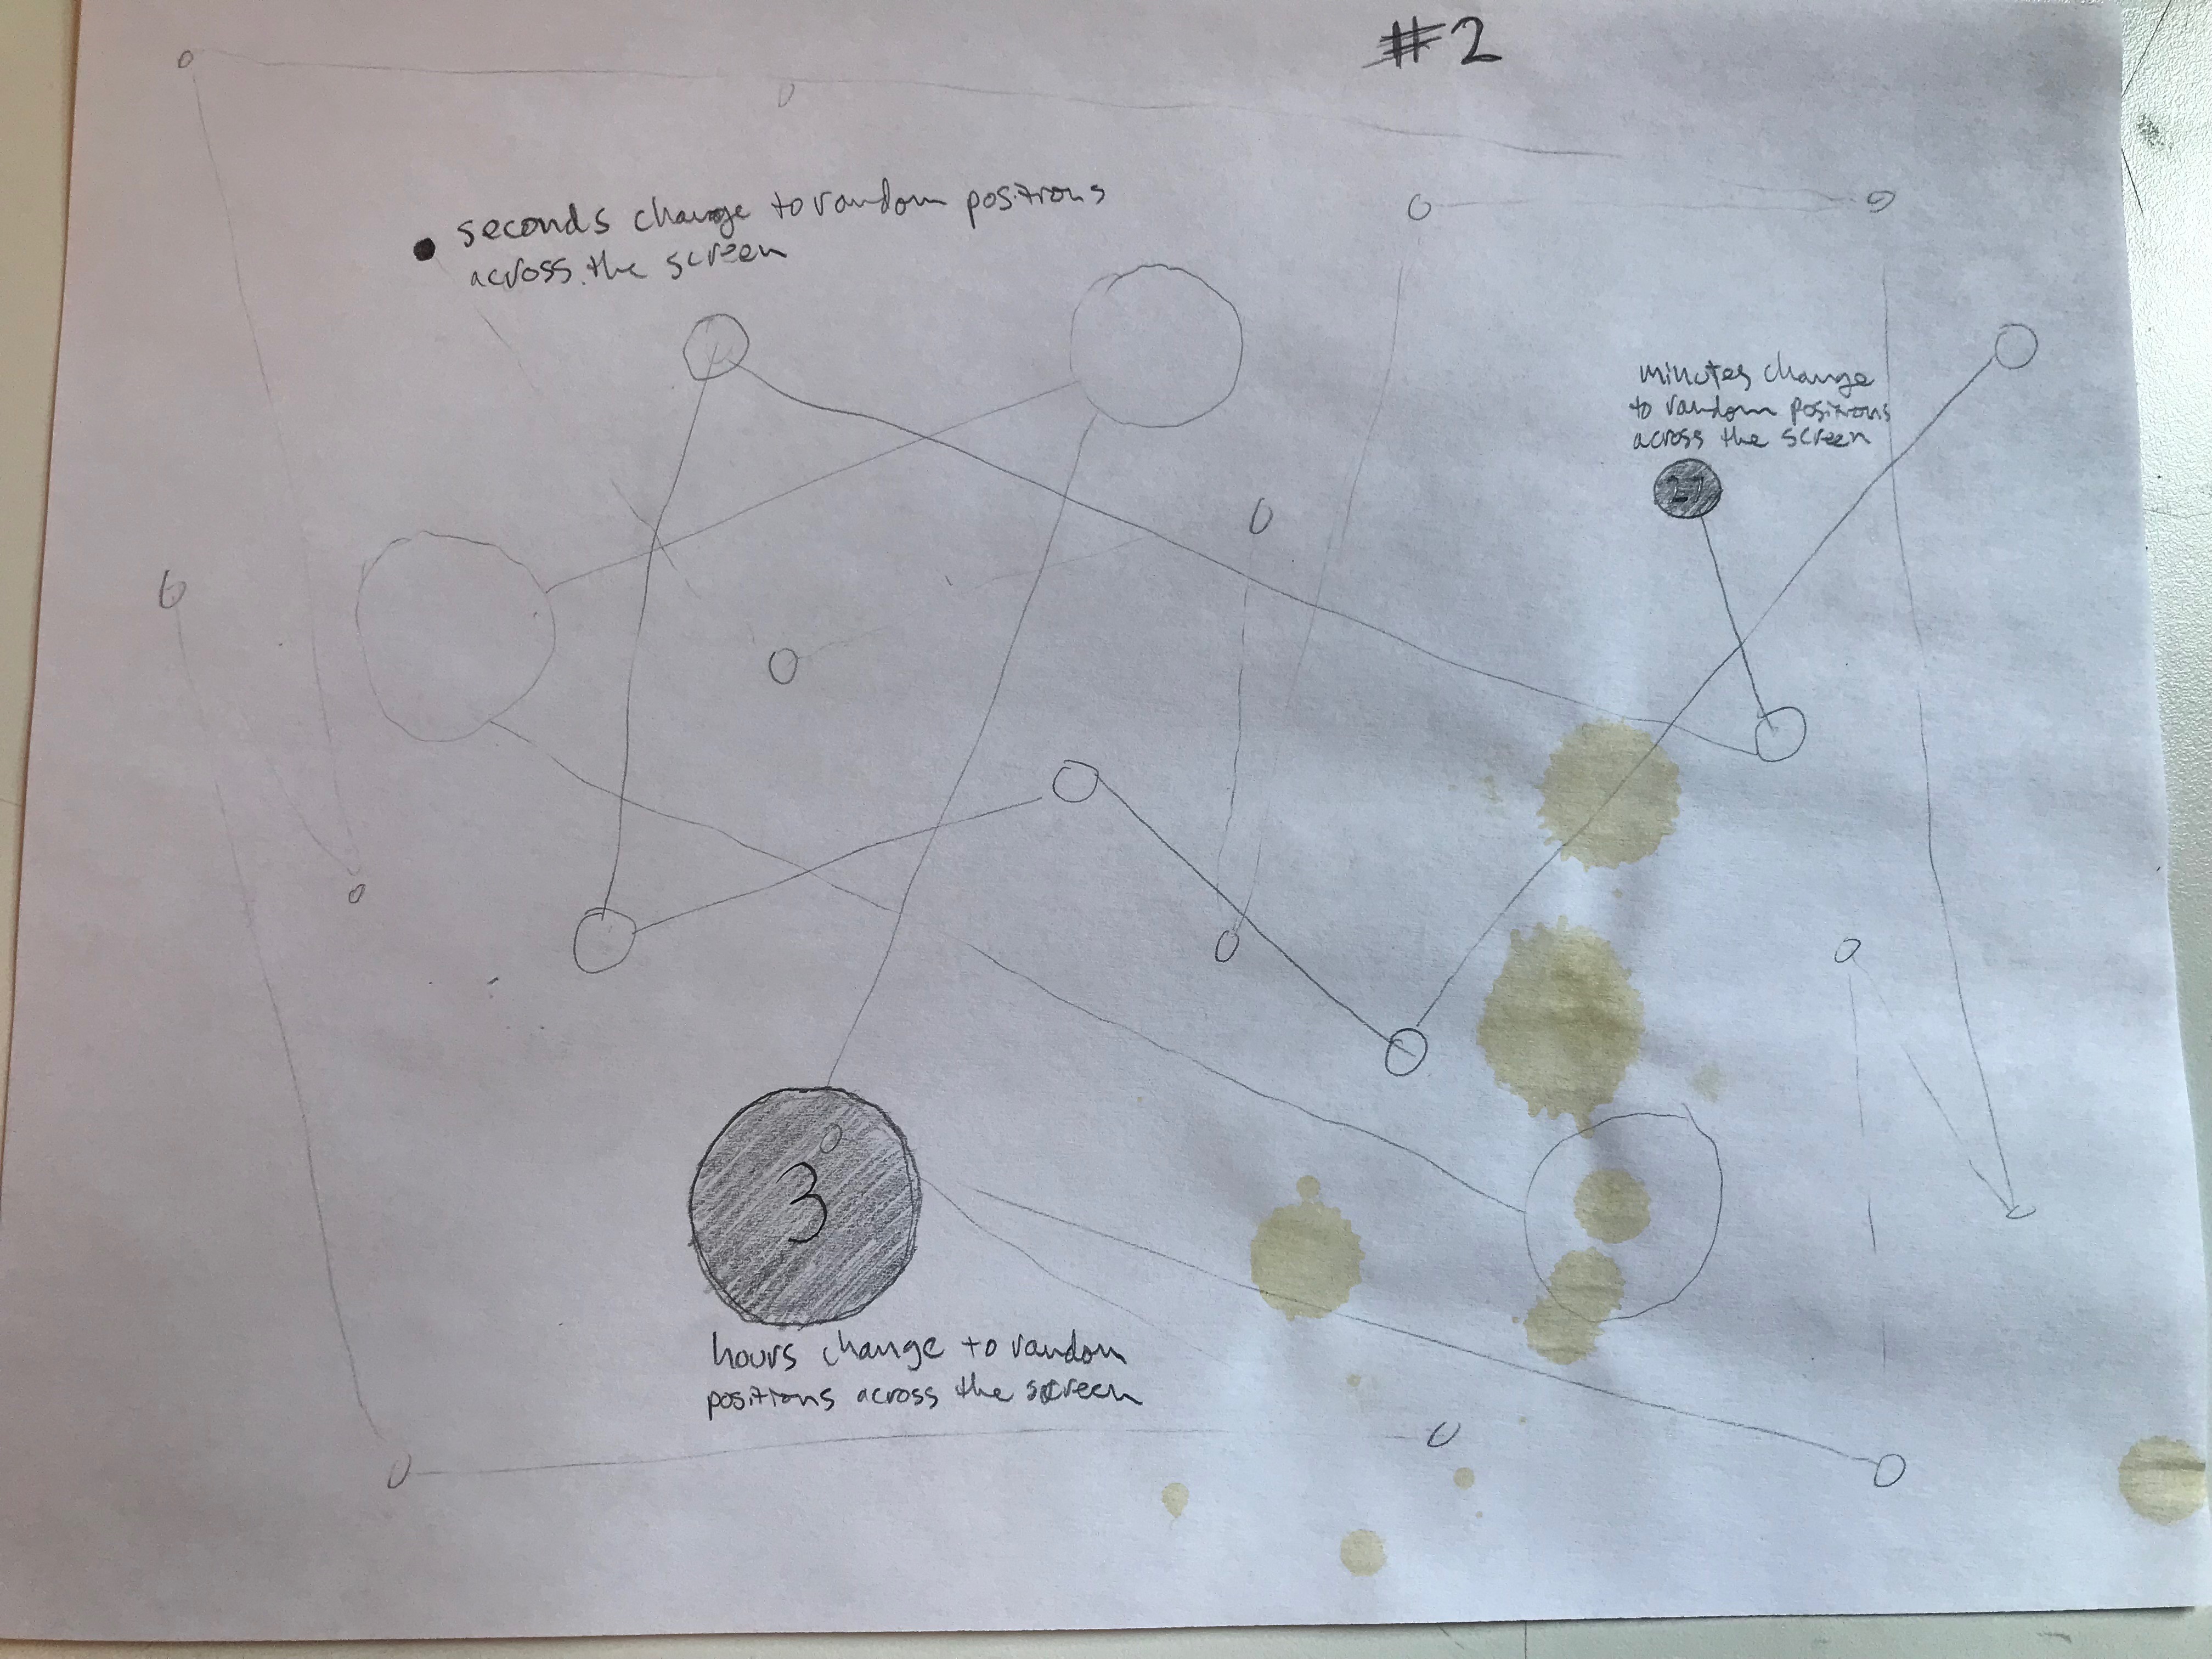 #2
seconds change to random positions
across the screen
minutes change
to random positions
across the screen
27
3
hours change to random
positions across the screen